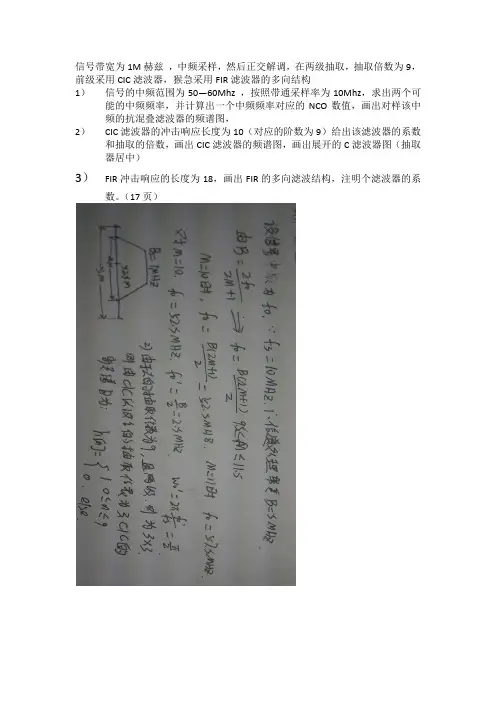 信号带宽为1M赫兹 ，中频采样，然后正交解调，在两级抽取，抽取倍数为9，
前级采用CIC滤波器，猴急采用FIR滤波器的多向结构
1） 信号的中频范围为50—60Mhz ，按照带通采样率为10Mhz，求出两个可
能的中频频率，并计算出一个中频频率对应的NCO数值，画出对样该中
频的抗混叠滤波器的频谱图，
2） CIC滤波器的冲击响应长度为10（对应的阶数为9）给出该滤波器的系数
和抽取的倍数，画出CIC滤波器的频谱图，画出展开的C滤波器图（抽取
器居中）
3） FIR冲击响应的长度为18，画出FIR的多向滤波结构，注明个滤波器的系
数。（17页）
设信号中心为f0, ∵ fs=10MHz, ∴ 信号处理带宽B=5MHz.
由B= 2f0/2M+1 ⇒ f0= B(2M+1)/2 , 9.5<M≤11.5
M=10时, f0= B(2M+1)/2 =52.5MHz. M=11时 f0=57.5MHz.
对于m=10, f0=52.5MHz. f0'= B/2 =2.5MHz, w0'=2π f0'/fs = π/2
B=1MHz
52.5M
2) 由于总的抽取倍数为9, 且两级, 则为3×3,
则由CIC长10
h[n]={ 1 0≤n≤9
0. else